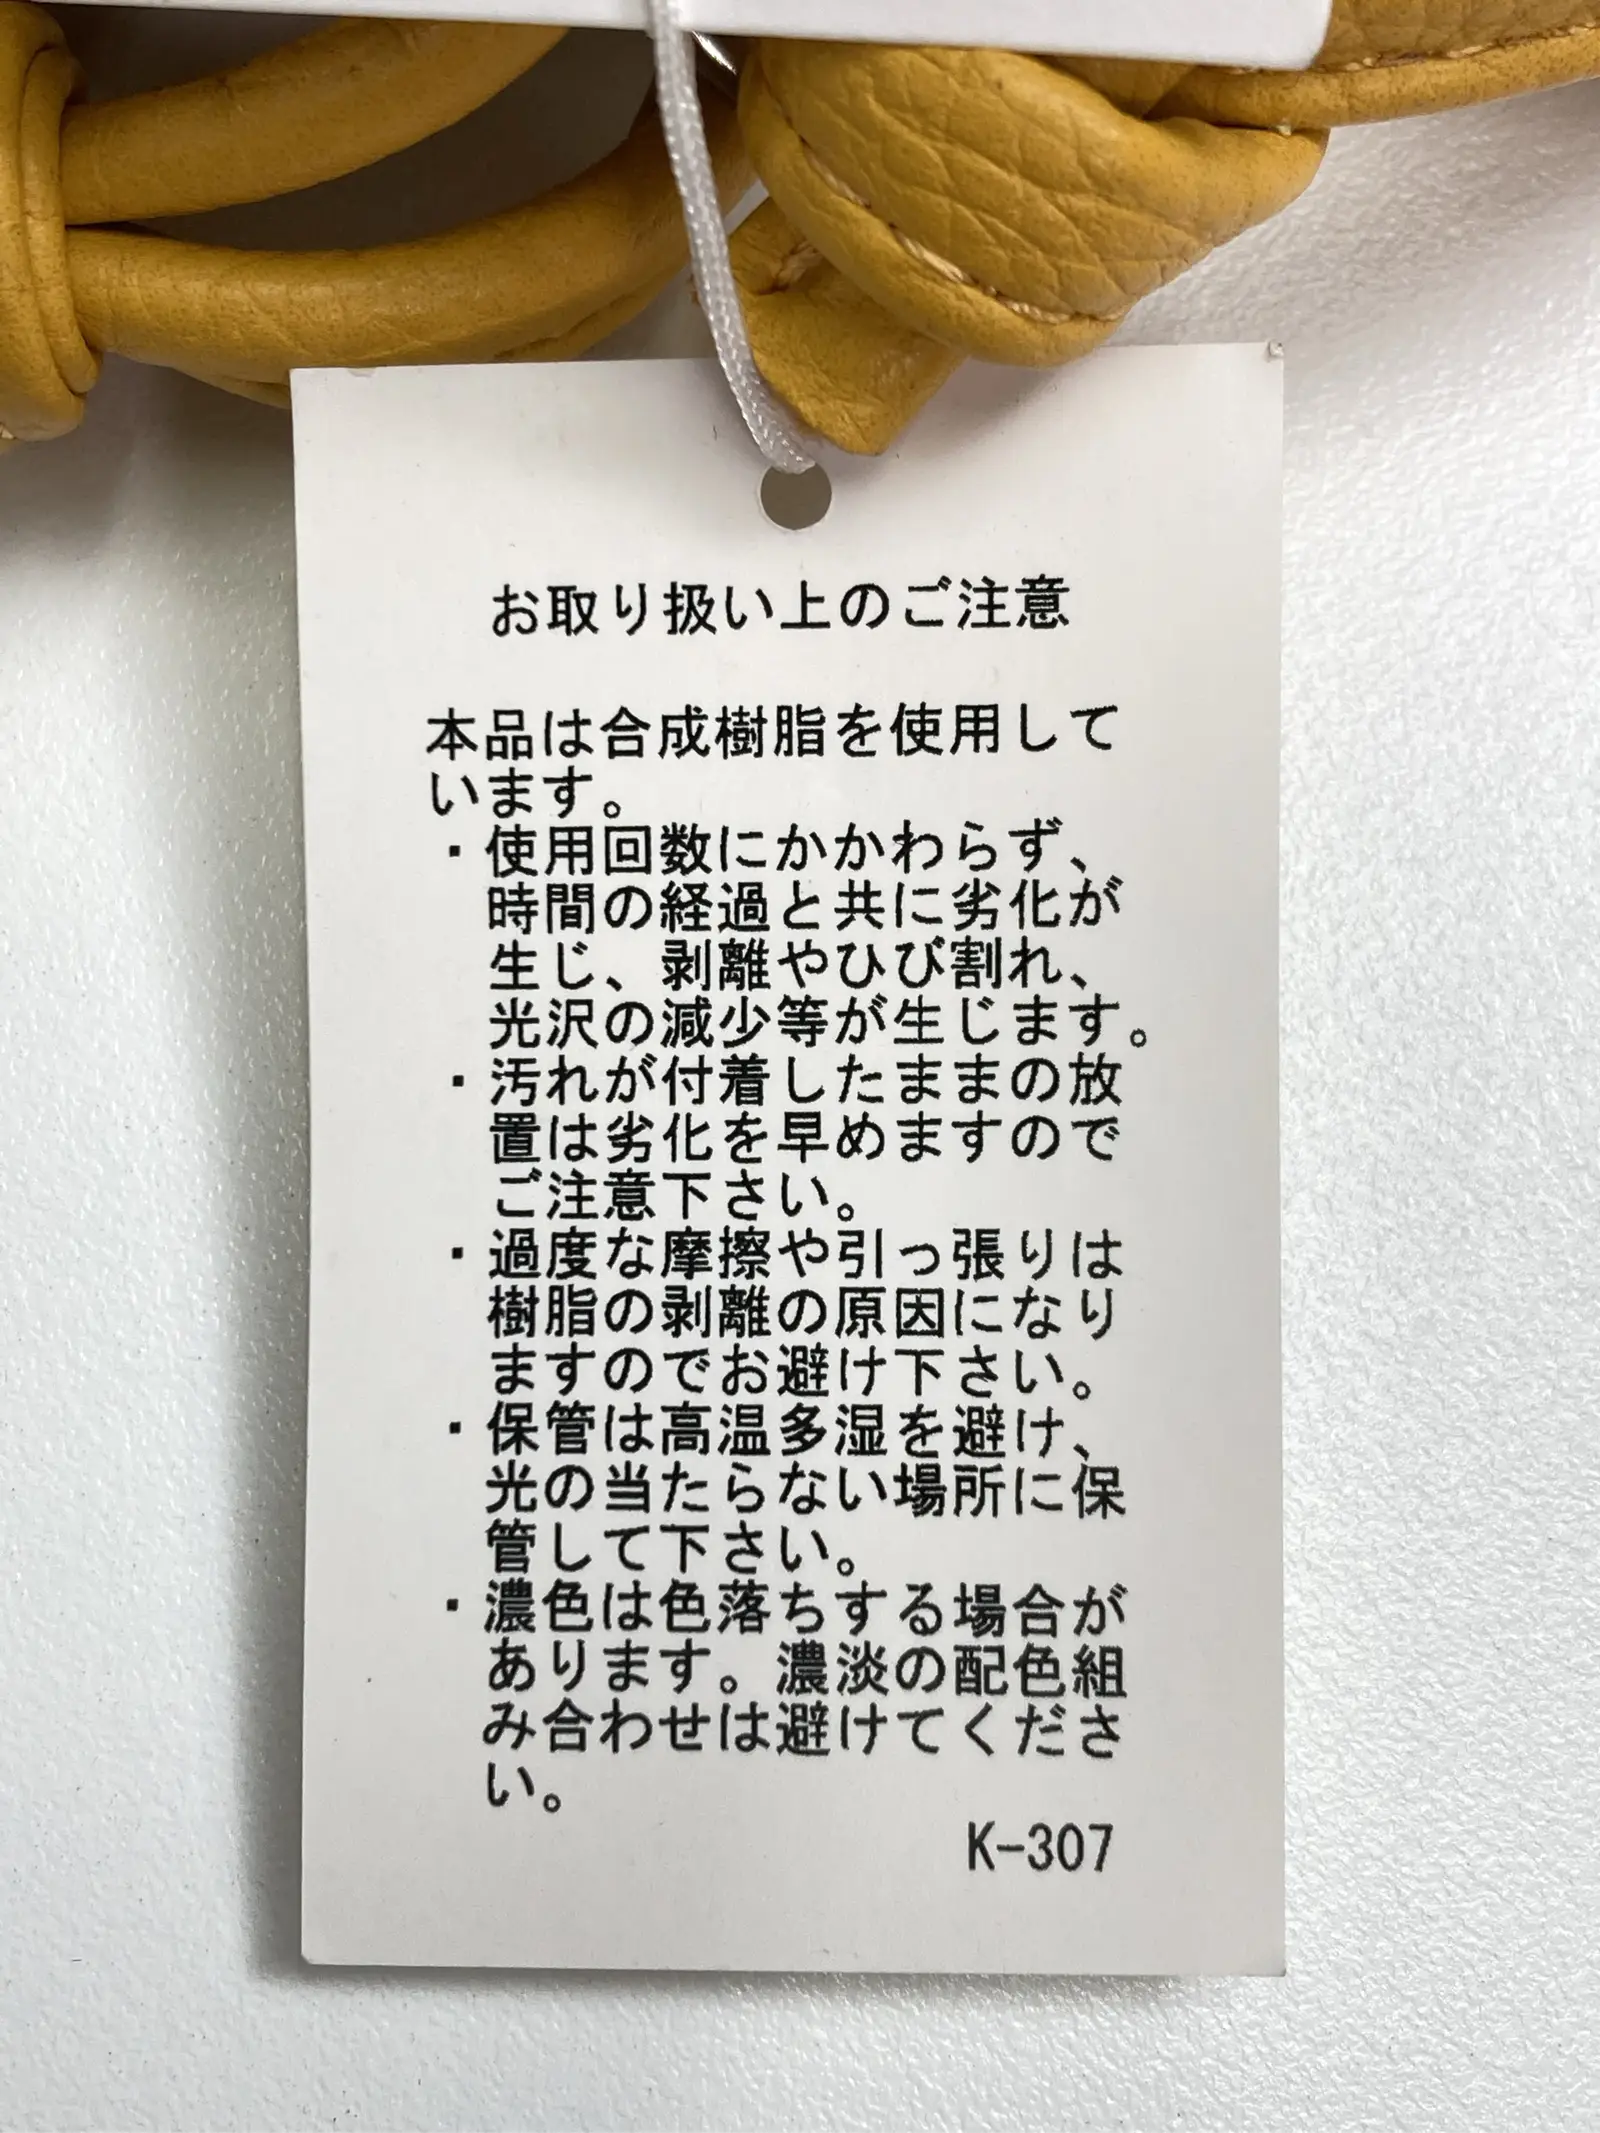 お取り扱い上のご注意
本品は合成樹脂を使用して
います。
・使用回数にかかわらず、
時間の経過と共に劣化が
生じ、剥離やひび割れ、
光沢の減少等が生じます。
・汚れが付着したままの放
置は劣化を早めますので
ご注意下さい。
・過度な摩擦や引っ張りは
樹脂の剥離の原因になり
ますのでお避け下さい。
・保管は高温多湿を避け、
光の当たらない場所に保
管して下さい。
・濃色は色落ちする場合が
あります。濃淡の配色組
み合わせは避けてくださ
い。
K-307